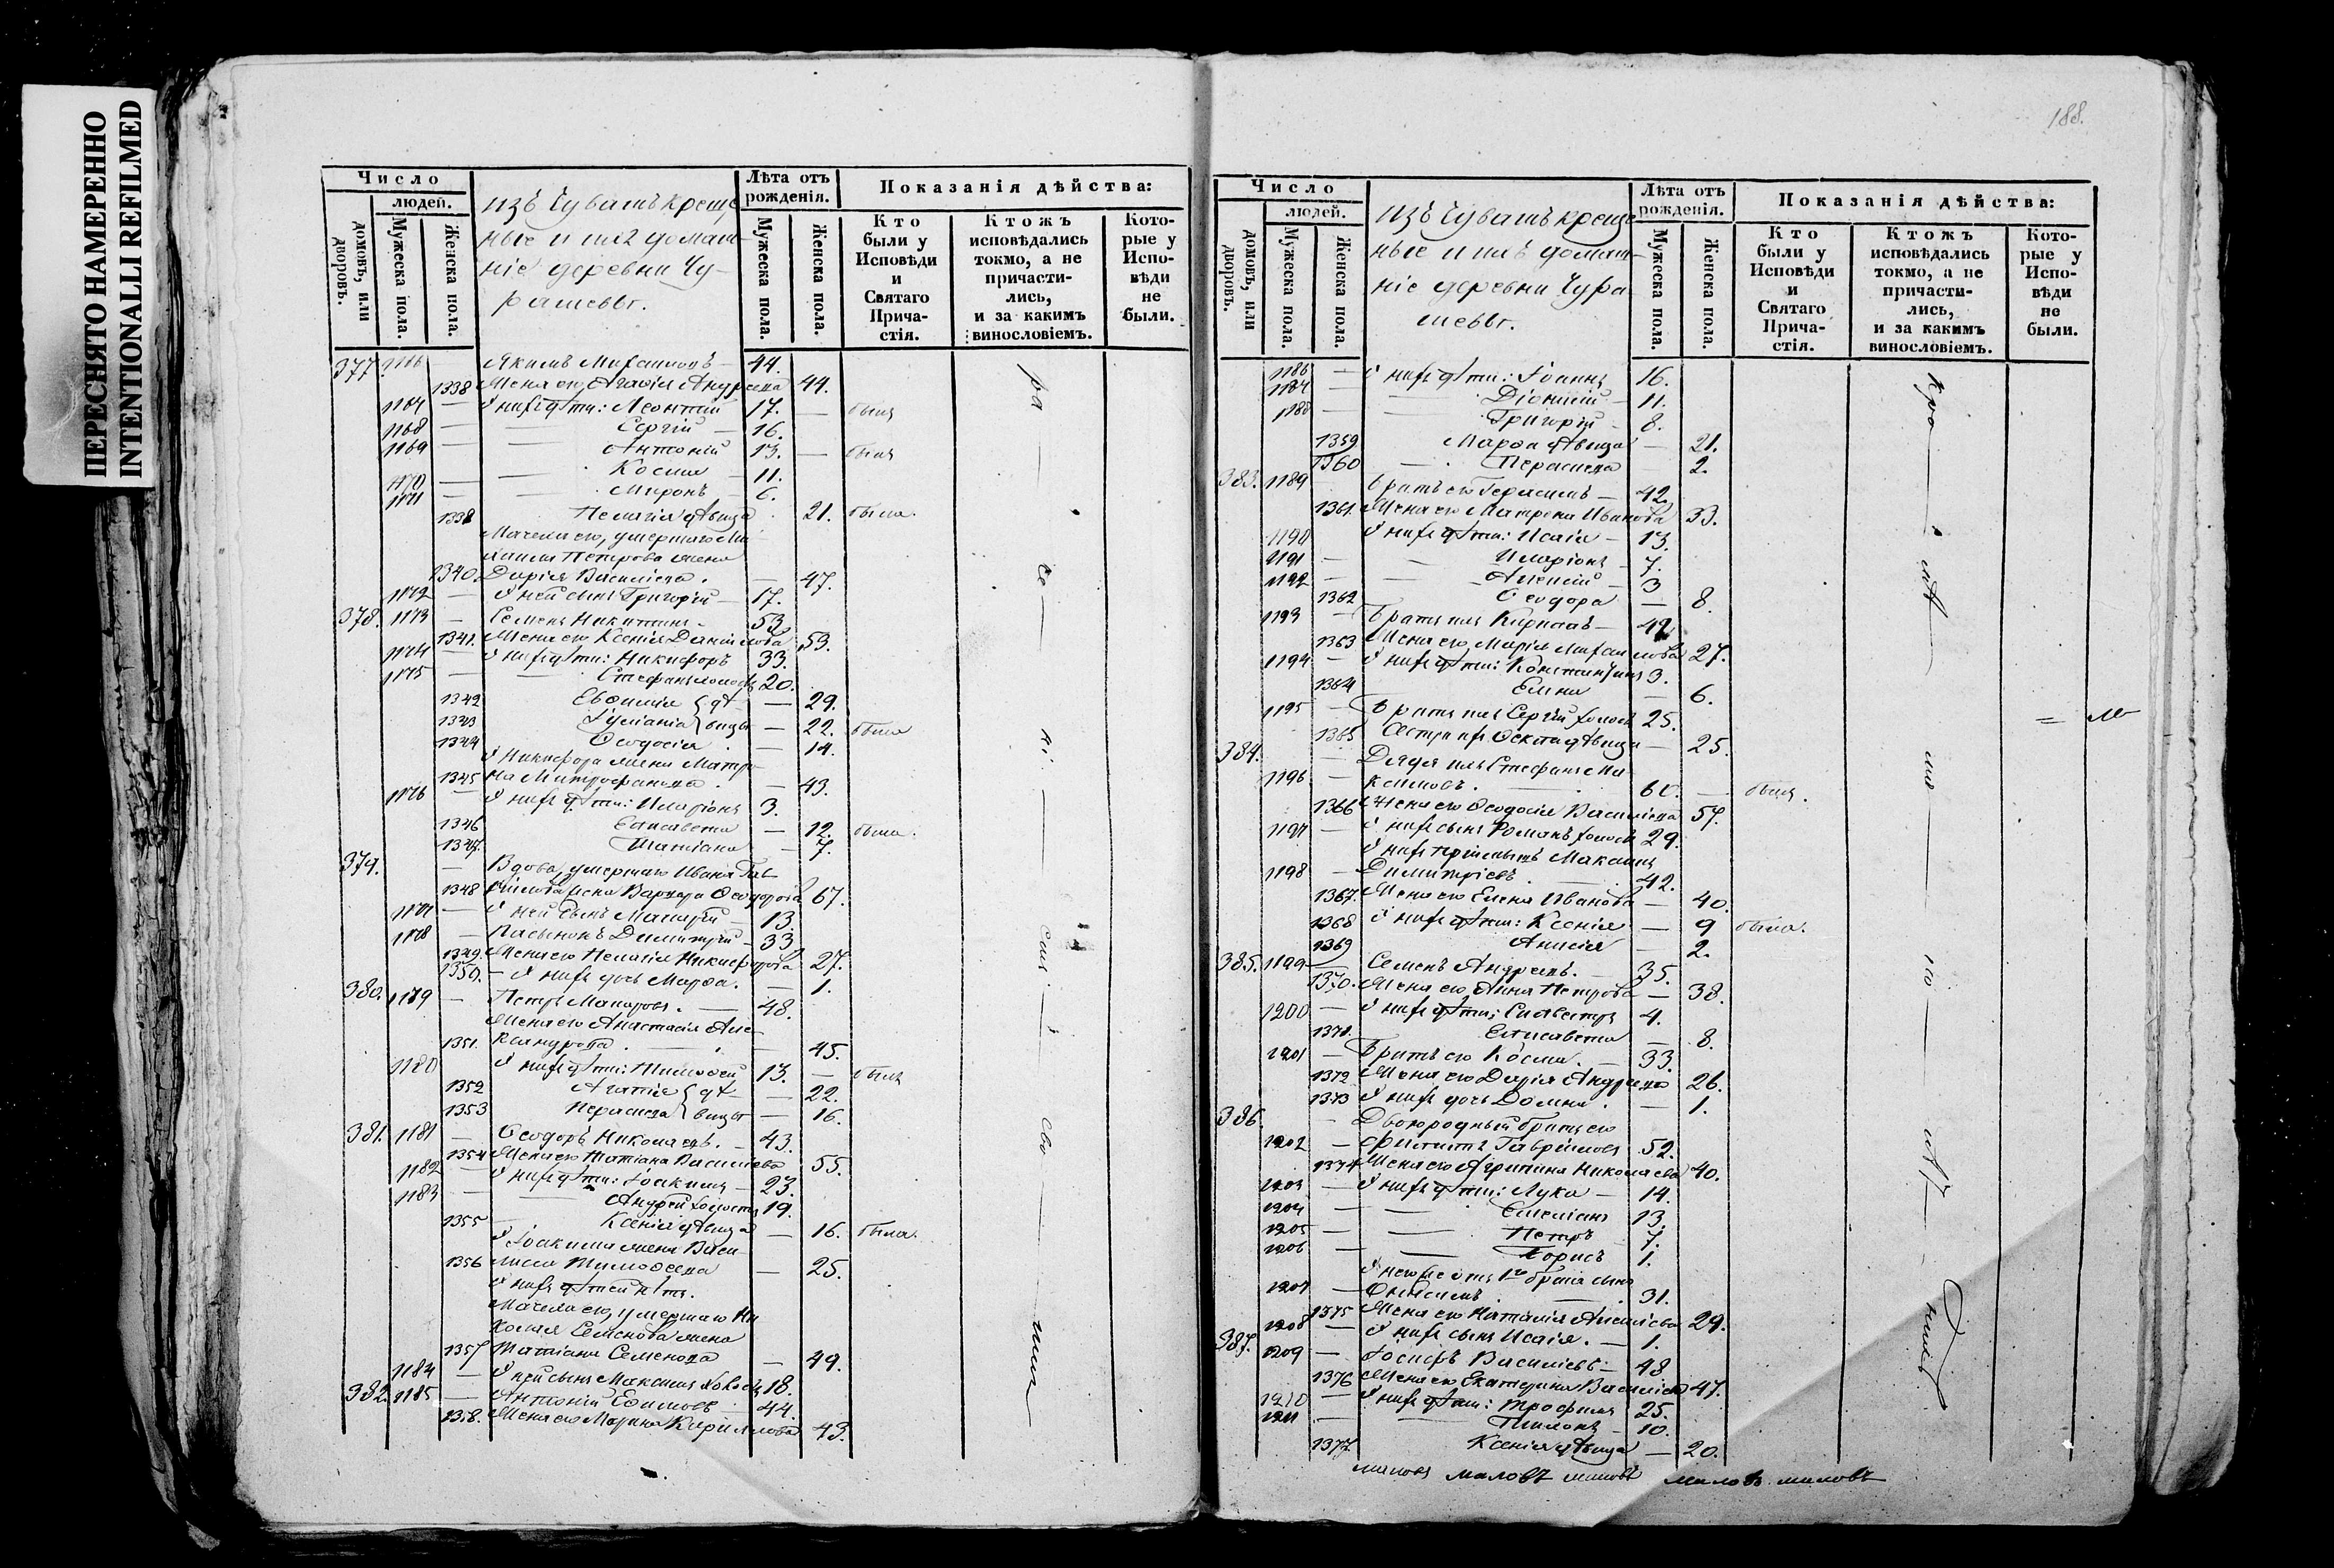 ПЕРЕСНЯТО НАМЕРЕННО
INTENTIONALLI REFILMED
Число
людей.
домовъ, или дворовъ.
Мужеска пола.
Женска пола.
изъ Чувашъ креще
ные и ихъ домаш-
ніе деревни Чу-
рашевъ.
Лѣта отъ рожденія.
Мужеска пола.
Женска пола.
Показанія дѣйства:
Кто были у Исповѣди и Святаго Прича-стія.
Ктожъ исповѣдались токмо, а не причасти-лись, и за какимъ винословіемъ.
Кото-рые у Испо-вѣди не были.
377. 1166 Якимъ Михайловъ — 44.
1338 Жена его Агафія Андреева 44.
У нихъ дѣти: Леонтій 17. — былъ
1168 — Сергій — 16.
1169 — Антоній 13. — былъ
1170 — Косма — 11.
1171 — Миронъ — 6.
1338 Пелагія дѣвица 21. была
Мачеха его, умершаго Ми
хаила Петрова жена
1340. Дарія Васильева. — 47.
1172 — У ней сынъ Григорій — 17.
378. 1173 — Семенъ Никитинъ — 53.
1341. Жена его Ксенія Даніилова 53.
1174 — У нихъ дѣти: Никифоръ 33.
1175 — Стефанъ холостъ 20.
1342 Евфимія дѣ — 29.
1343 Іуліанія вицы — 22. была
1344 Ѳеодосія — 14.
У Никифора жена Матре
1345 на Митрофанова — 43.
1176 — У нихъ дѣти: Иларіонъ 3.
1346 Елисавета — 12. была.
1347. Татіана — 7.
379. — Вдова, умершаго Ивана Гав
1348 ріилова жена Варвара Ѳеодорова 67.
1177 — У ней сынъ Макарій — 13.
1178 — Пасынокъ Димитрій — 33
1349. Жена его Пелагія Никифорова 27.
1350. — У нихъ дочь Марѳа. — 1.
380. 1179 — Петръ Макаровъ. — 48.
Жена его Анастасія Алек
1351. сандрова — 45.
1180 — У нихъ дѣти: Тимоѳей 13. — былъ
1352 Агафія дѣ — 22.
1353 Параскева вицы — 16.
381. 1181 — Ѳеодоръ Николаевъ. — 43.
1354 Жена его Татіана Васильева 55.
1182 — У нихъ дѣти: Іоакимъ — 23.
1183 — Андрей холостъ 19.
1355 — Ксенія дѣвица — 16. была.
У Іоакима жена Васи
1356 лисса Тимоѳеева — 25.
У нихъ дѣтей нѣтъ.
Мачеха его, умершаго Ни
колая Семенова жена
1357 Татіана Семенова — 49.
1184 — У ней сынъ Максимъ холостъ 18.
382. 1185 — Антоній Ефимовъ — 44.
1358. Жена его Марина Кириллова 43.
188.
Число
людей.
домовъ, или дворовъ.
Мужеска пола.
Женска пола.
изъ Чувашъ креще
ные и ихъ домаш-
ніе деревни Чура
шевъ.
Лѣта отъ рожденія.
Мужеска пола.
Женска пола.
Показанія дѣйства:
Кто были у Исповѣди и Святаго Прича-стія.
Ктожъ исповѣдались токмо, а не причасти-лись, и за какимъ винословіемъ.
Кото-рые у Испо-вѣди не были.
1186 — У нихъ дѣти: Іоаннъ 16.
1187 — Діонисій — 11.
1188 — Григорій — 8.
1359 Марѳа дѣвица — 21.
1360 — Параскева — 2.
383. 1189 Братъ его Герасимъ — 42.
1361. Жена его Матрена Иванова 33.
1190 У нихъ дѣти: Исаія — 13.
1191 — Иларіонъ — 7.
1192 — Алексій — 3
1362 Ѳеодора — 8.
1193 — Братъ ихъ Кириллъ — 42.
1363 Жена его Марія Михайлова 27.
1194 — У нихъ дѣти: Константинъ 3.
1364 Елена — 6.
1195 — Братъ ихъ Сергій холостъ 25.
1365 Сестра ихъ Ѳекла дѣвица — 25.
384. — Дядя ихъ Стефанъ Ма
1196 — ксимовъ. 60. — былъ.
1366 Жена его Ѳеодосія Васильева 57.
1197 — У нихъ сынъ Романъ холостъ 29.
У нихъ пріемышъ Максимъ
1198 — Димитріевъ — 42.
1367. Жена его Елена Иванова — 40.
1368 У нихъ дѣти: Ксенія — 9 была.
1369 Анисія — 2.
385. 1199 — Семенъ Андреевъ. — 35.
1370. Жена его Анна Петрова — 38.
1200 — У нихъ дѣти: Силвестръ 4.
1371. Елисавета — 8.
1201 — Братъ его Косма. — 33.
1372 Жена его Дарія Андреева 26.
1373 У нихъ дочь Домна. — 1.
386. — Двоюродный братъ его
1202 — Филиппъ Гавріиловъ 52.
1374 Жена его Агрипина Николаева 40.
1203 — У нихъ дѣти: Лука — 14.
1204 — Емеліанъ 13.
1205 — Петръ — 7.
1206 — Борисъ 1.
1207 — Онисимъ — 31.
1375 Жена его Наталія Алексіева 29.
1208 — У нихъ сынъ Исаія. — 1.
387. 1209 — Іосифъ Васильевъ — 48
1376 Жена его Екатерина Васильева 47.
1210 — У нихъ дѣти: Трофимъ 25.
1211 — Филимонъ — 10.
1377 Ксенія дѣвица — 20.